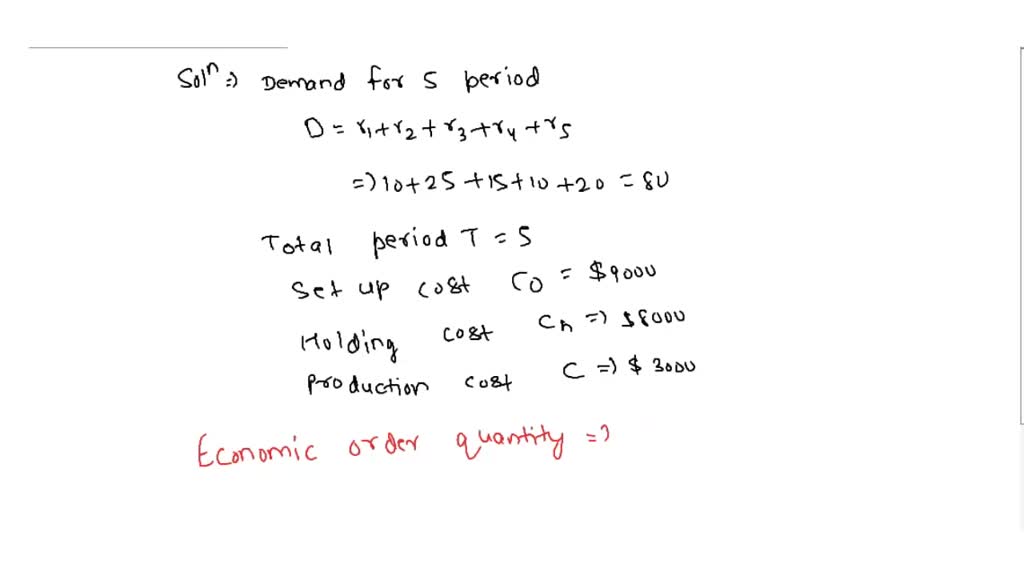 Solⁿ ⇒ Demand for 5 period
D = r₁+r₂+r₃+r₄+r₅
⇒ 10+25+15+10+20 = 80
Total period T = 5
Set up cost C₀ = $9000
Holding cost Cₕ ⇒ $8000
Production cost C ⇒ $3000
Economic order quantity ⇒